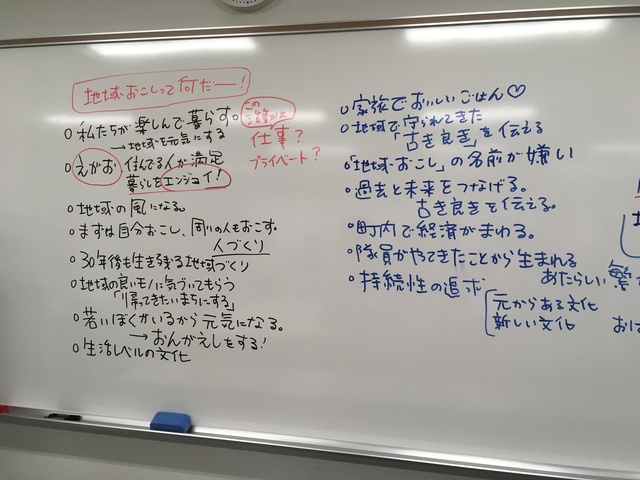 地域おこしって何だー！
○私たちが楽しんで暮らす。
→地域を元気にする
この
仕事？
プライベート？
○えがお、住んでる人が満足
暮らしをエンジョイ！
○地域の風になる。
○まずは自分おこし、周りの人もおこす。
人づくり
○30年後も生き残る地域づくり
○地域の良いモノに気づいてもらう
「帰ってきたいまちにする」
○若いぼくがいるから元気になる。
→おんがえしをする！
○生活レベルの文化
○家族でおいしいごはん♡
○地域で守られてきた
「古き良き」を伝える
○「地域おこし」の名前が嫌い
○過去と未来をつなげる。
古き良きを伝える。
○町内で経済がまわる。
○隊員がやってきたことから生まれる
あたらしい
○持続性の追求
元からある文化
新しい文化